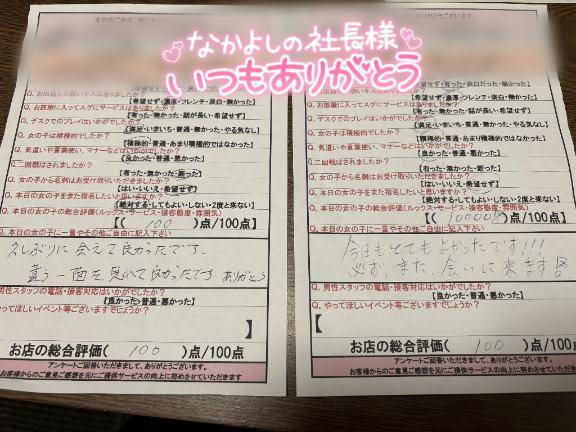 なかよしの社長様
いつもありがとう
本日のご来店、
りがとうございます。
Q. お部屋に入ってスグにサービスはありましたか?
【有った・無かった・話が長い・希望せず】
Q. デスクでのプレイはいかがでしたか?
【満足・いまいち・普通・無かった・やる気なし】
Q. 女の子は積極的でしたか?
【積極的・普通・あまり積極的ではなかった】
Q. 気遣いや言葉使い、マナーなどはいかがでしたか?
【良かった・普通・悪かった】
Q. 二回戦はされましたか?
【有った・無かった・断った】
Q. 女の子から名刺はお受け取りいただけましたか?
【はい・いいえ・希望せず】
Q. 本日の女の子をまた指名したいと思いますか?
【絶対する・してもよい・しない・2度と来ない】
Q. 本日の女の子の総合評価(ルックス・サービス・接客態度・雰囲気)
【( 100 )点/100点
Q. 本日の女の子に一言やその他ご自由に記入下さい
久しぶりに会えて良かったです。
違う一面を見れて良かったです ありがとう
男性スタッフの電話・接客対応はいかがでしたか?
【良かった・普通・悪かった】
Q. やってほしいイベント等ございますでしょうか?
お店の総合評価( 100 )点/100点
アンケートご回答いただきまして、ありがとうございます。
お客様からのご意見ご感想を元にご提供サービスの向上に努めさせていただきます
Q. お部屋に入ってスグにサービスはありましたか?
【有った・無かった・話が長い・希望せず】
Q. デスクでのプレイはいかがでしたか?
【満足・いまいち・普通・無かった・やる気なし】
Q. 女の子は積極的でしたか?
【積極的・普通・あまり積極的ではなかった】
Q. 気遣いや言葉使い、マナーなどはいかがでしたか?
【良かった・普通・悪かった】
Q. 二回戦はされましたか?
【有った・無かった・断った】
Q. 女の子から名刺はお受け取りいただけましたか?
【はい・いいえ・希望せず】
Q. 本日の女の子をまた指名したいと思いますか?
【絶対する・してもよい・しない・2度と来ない】
Q. 本日の女の子の総合評価(ルックス・サービス・接客態度・雰囲気)
点/100点
Q. 本日の女の子に一言やその他ご自由に記入下さい
今日もとてもよかったです!!!
必ず、また、会いに来ます
Q. 男性スタッフの電話・接客対応はいかがでしたか?
【良かった・普通・悪かった】
Q. やってほしいイベント等ございますでしょうか?
お店の総合評価( 100 )点/100点
アンケートご回答いただきまして、ありがとうございます。
お客様からのご意見ご感想を元にご提供サービスの向上に努めさせていただきます